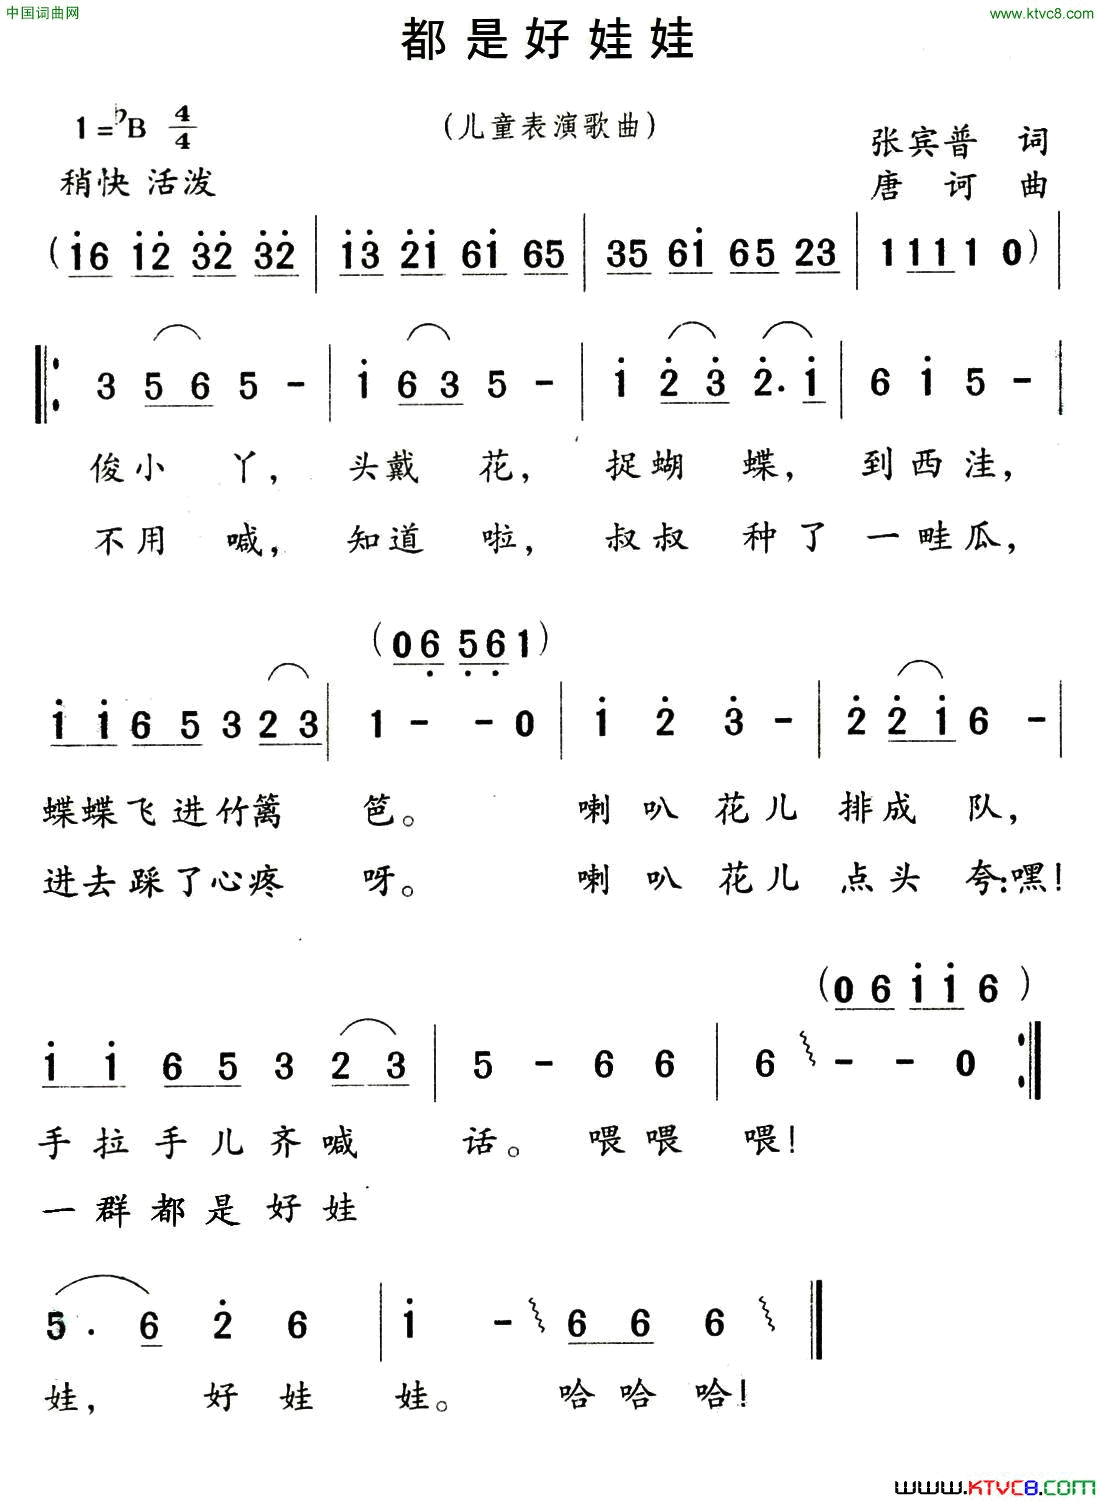 中国词曲网
www.ktvc8.com
都是好娃娃
1=♭B 4/4
(儿童表演歌曲)
张宾普 词
稍快 活泼
唐诃 曲
(i6 i2 32 32 | i3 2i 6i 65 | 35 6i 65 23 | 1 11 1 0) |
3 56 5 - | i 63 5 - | i 23 2. i | 6 i 5 - |
俊小 丫, 头戴 花, 捉蝴 蝶, 到西洼,
不用 喊, 知道 啦, 叔叔 种了 一畦瓜,
(06 56 1)
i i 6 5 3 2 3 | 1 - - 0 | i 2 3 - | 2 2i 6 - |
蝶蝶飞进竹篱 笆。 喇叭花儿排成 队,
进去踩了心疼 呀。 喇叭花儿点头 夸:嘿!
(06 ii 6)
i i 6 5 3 2 3 | 5 - 6 6 | 6 - - 0 :|
手拉手儿齐喊 话。 喂喂 喂!
一群都是好娃
5. 6 2 6 | i - 6 6 6 ‖
娃, 好娃 娃。 哈哈哈!
www.KTVC8.com